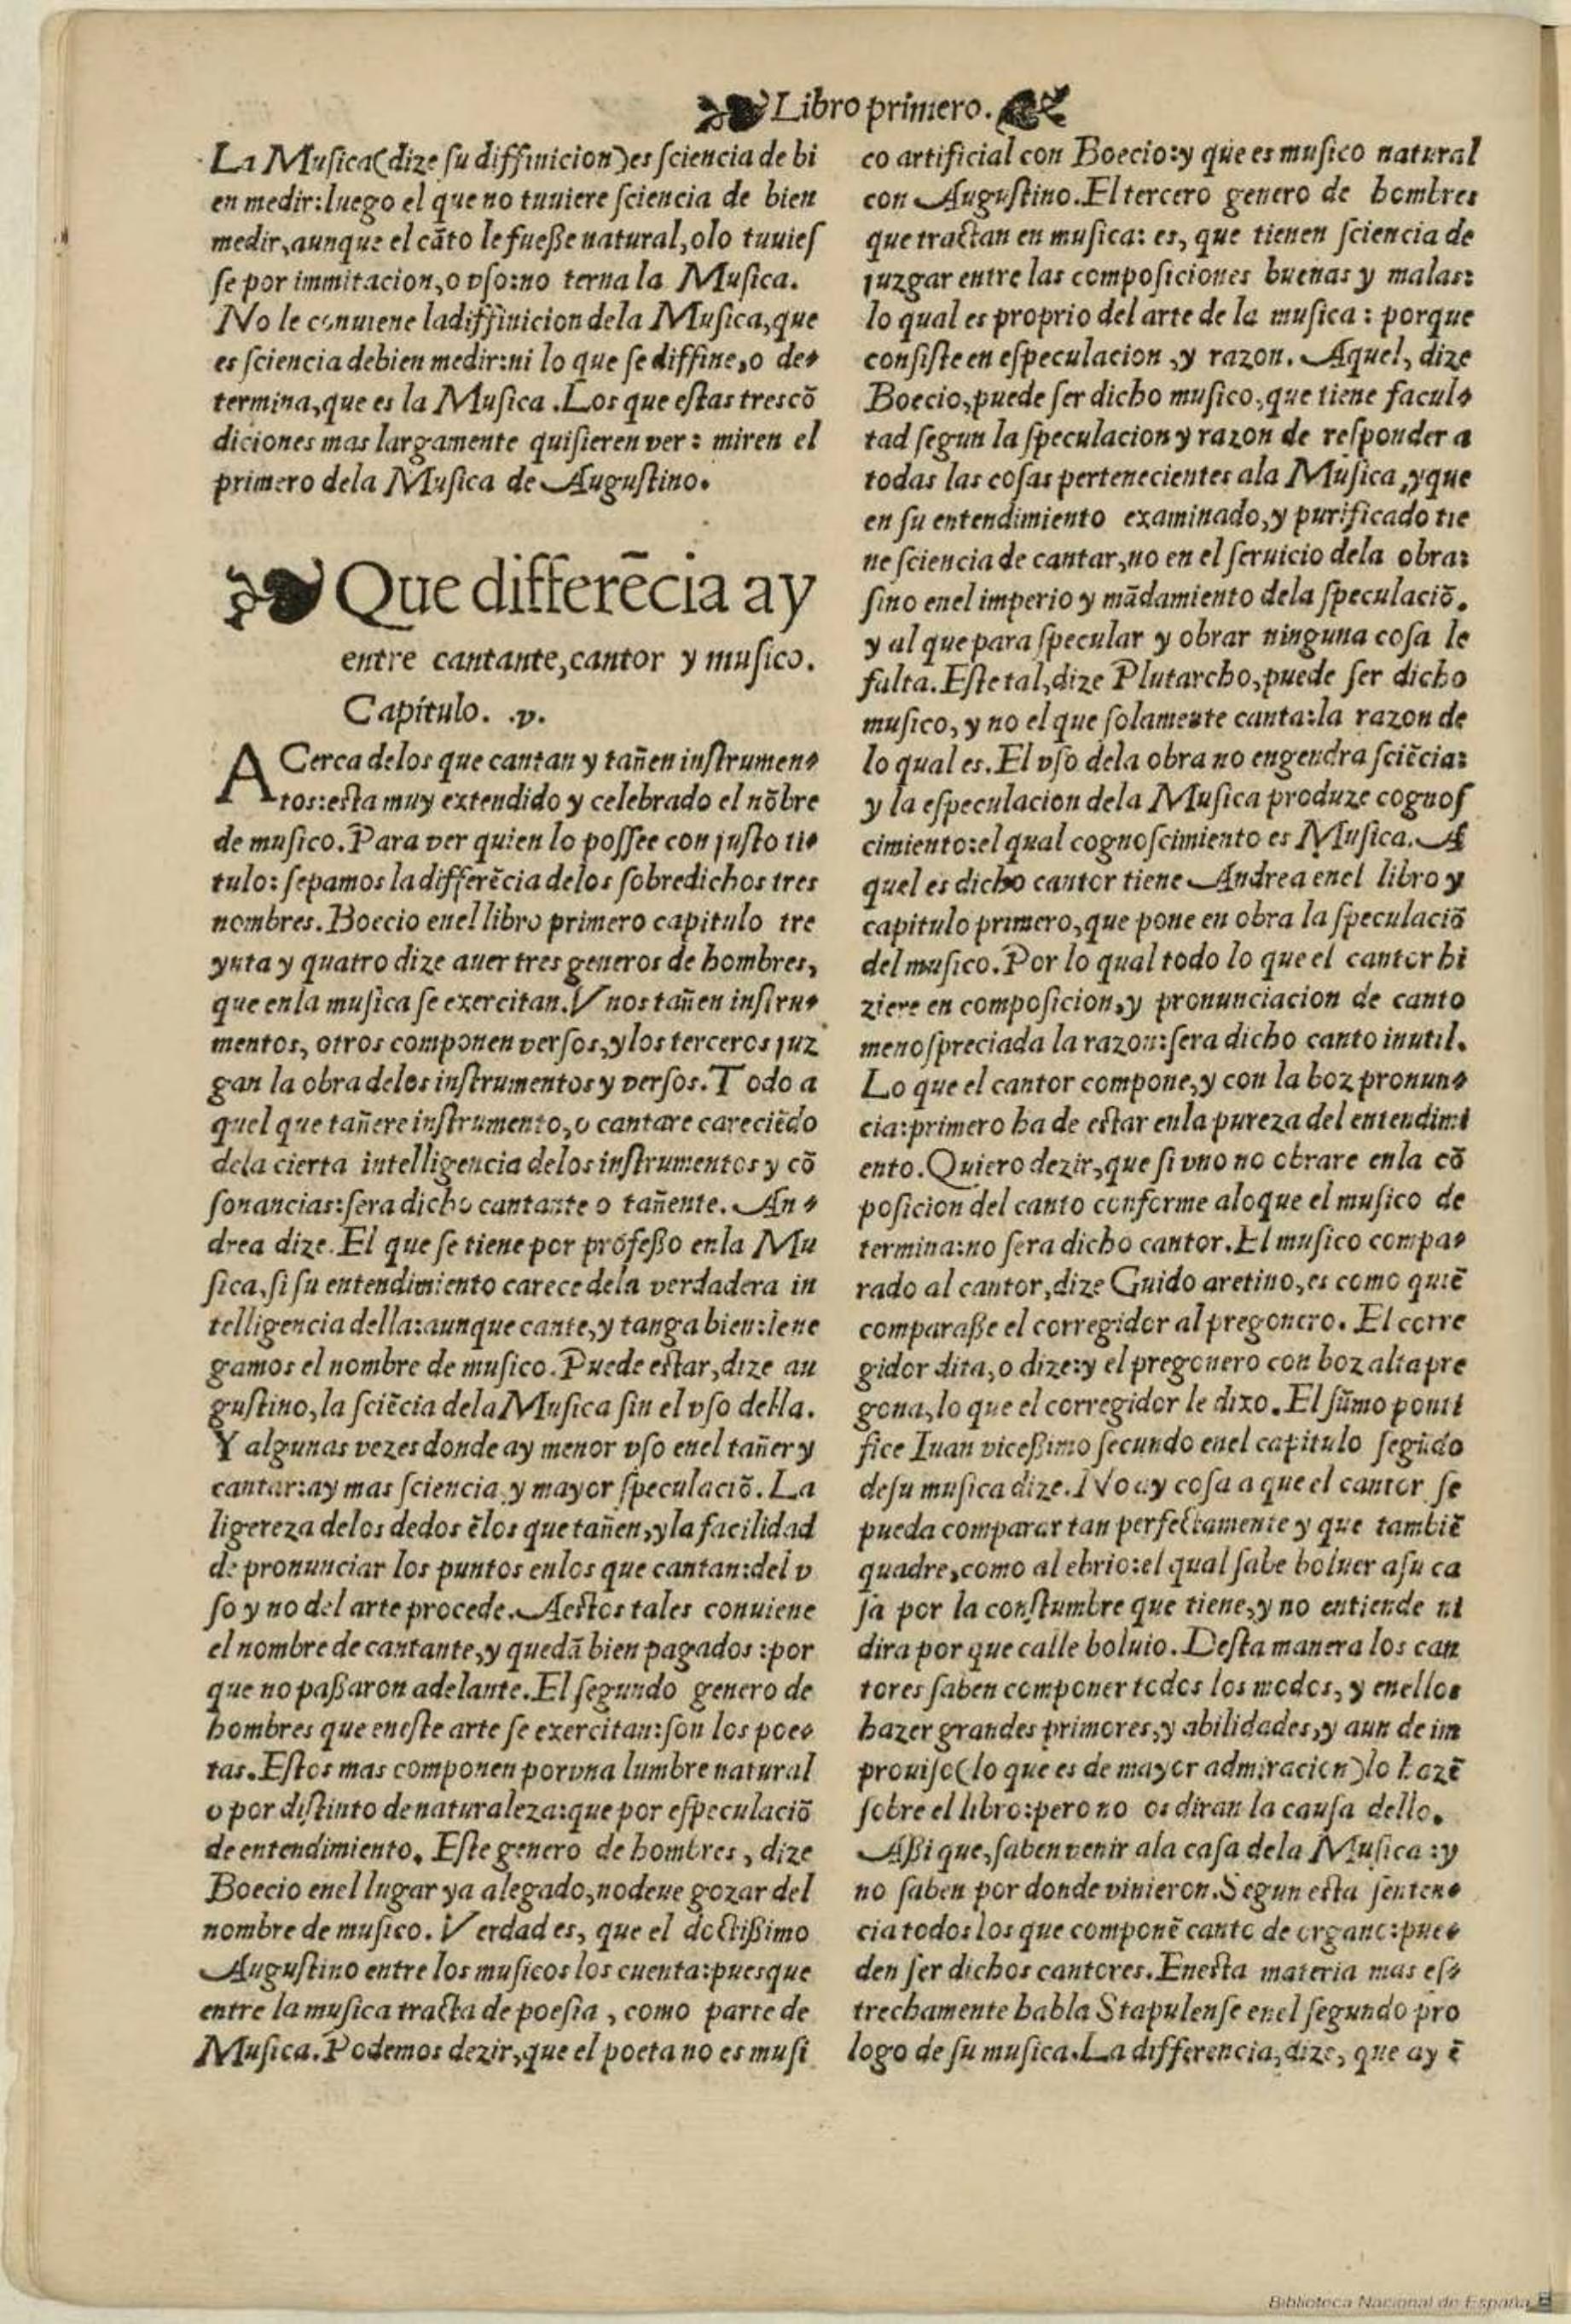 Libro primero.
La Musica(dize su diffinicion)es sciencia de bi
en medir:luego el que no tuuiere sciencia de bien
medir,aunque el cãto le fuesse natural,o lo tuuies
se por immitacion,o vso:no terna la Musica.
No le conuiene la diffinicion dela Musica,que
es sciencia de bien medir:ni lo que se diffine,o de-
termina,que es la Musica.Los que estas tres cõ
diciones mas largamente quisieren ver: miren el
primero dela Musica de Augustino.
Que differẽcia ay
entre cantante,cantor y musico.
Capitulo. .v.
ACerca delos que cantan y tañen instrumen-
tos:esta muy extendido y celebrado el nõbre
de musico.Para ver quien lo possee con justo ti-
tulo: sepamos la differẽcia delos sobredichos tres
nombres.Boecio enel libro primero capitulo tre
ynta y quatro dize auer tres generos de hombres,
que enla musica se exercitan.Vnos tañen instru-
mentos, otros componen versos,y los terceros juz
gan la obra delos instrumentos y versos.Todo a
quel que tañere instrumento,o cantare careciẽdo
dela cierta intelligencia delos instrumentos y cõ
sonancias:sera dicho cantante o tañente. An-
drea dize. El que se tiene por professo enla Mu
sica,si su entendimiento carece dela verdadera in
telligencia della:aunque cante,y tanga bien:le ne
gamos el nombre de musico.Puede estar,dize au
gustino,la sciẽcia dela Musica sin el vso della.
Y algunas vezes donde ay menor vso enel tañer y
cantar:ay mas sciencia,y mayor speculaciõ. La
ligereza delos dedos ẽlos que tañen,y la facilidad
de pronunciar los puntos enlos que cantan:del v
so y no del arte procede. A estos tales conuiene
el nombre de cantante,y quedã bien pagados :por
que no passaron adelante.El segundo genero de
hombres que eneste arte se exercitan:son los poe-
tas.Estos mas componen por vna lumbre natural
o por distinto de naturaleza:que por especulaciõ
de entendimiento. Este genero de hombres , dize
Boecio enel lugar ya alegado,no deue gozar del
nombre de musico. Verdad es, que el doctissimo
Augustino entre los musicos los cuenta:puesque
entre la musica tracta de poesia , como parte de
Musica.Podemos dezir,que el poeta no es musi
co artificial con Boecio:y que es musico natural
con Augustino.El tercero genero de hombres
que tractan en musica: es, que tienen sciencia de
juzgar entre las composiciones buenas y malas:
lo qual es proprio del arte de la musica : porque
consiste en especulacion ,y razon. Aquel, dize
Boecio,puede ser dicho musico,que tiene facul-
tad segun la speculacion y razon de responder a
todas las cosas pertenecientes ala Musica ,y que
en su entendimiento examinado,y purificado tie
ne sciencia de cantar,no en el seruicio dela obra:
sino enel imperio y mãdamiento dela speculaciõ.
y al que para specular y obrar ninguna cosa le
falta.Este tal,dize Plutarcho,puede ser dicho
musico, y no el que solamente canta:la razon de
lo qual es.El vso dela obra no engendra sciẽcia:
y la especulacion dela Musica produze cognos
cimiento:el qual cognoscimiento es Musica. A
quel es dicho cantor tiene Andrea enel libro y
capitulo primero,que pone en obra la speculaciõ
del musico.Por lo qual todo lo que el cantor hi
ziere en composicion,y pronunciacion de canto
menospreciada la razon:sera dicho canto inutil.
Lo que el cantor compone,y con la boz pronun-
cia:primero ha de estar enla pureza del entendimi
ento.Quiero dezir,que si vno no obrare enla cõ
posicion del canto conforme alo que el musico de
termina:no sera dicho cantor.El musico compa-
rado al cantor,dize Guido aretino,es como quiẽ
comparasse el corregidor al pregonero. El corre
gidor dita,o dize:y el pregonero con boz alta pre
gona,lo que el corregidor le dixo.El sũmo ponti
fice Iuan vicessimo secundo enel capitulo segũdo
de su musica dize.No ay cosa a que el cantor se
pueda comparar tan perfectamente y que tambiẽ
quadre,como al ebrio:el qual sabe boluer a su ca
sa por la constumbre que tiene,y no entiende ni
dira por que calle boluio.Desta manera los can
tores saben componer todos los modos, y enellos
hazer grandes primores,y abilidades,y aun de im
prouiso(lo que es de mayor admiracion)lo hazẽ
sobre el libro:pero no os diran la causa dello.
Assi que,saben venir ala casa dela Musica :y
no saben por donde vinieron.Segun esta senten-
cia todos los que componẽ canto de organo:pue-
den ser dichos cantores.Enesta materia mas es-
trechamente habla Stapulense enel segundo pro
logo de su musica.La differencia,dize, que ay ẽ
Biblioteca Nacional de España